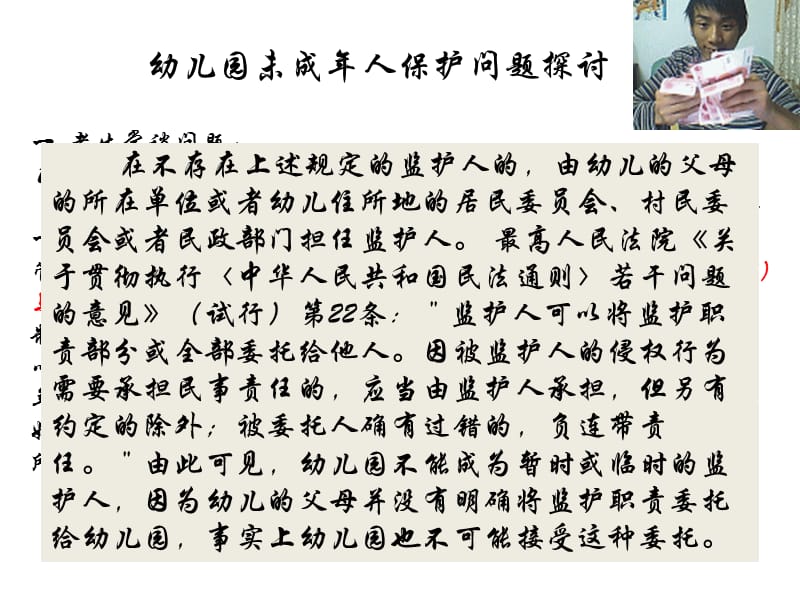 幼儿园未成年人保护问题探讨
在不存在上述规定的监护人的，由幼儿的父母
的所在单位或者幼儿住所地的居民委员会、村民委
员会或者民政部门担任监护人。 最高人民法院《关
于贯彻执行〈中华人民共和国民法通则〉若干问题
的意见》（试行）第22条："监护人可以将监护职
责部分或全部委托给他人。因被监护人的侵权行为
需要承担民事责任的，应当由监护人承担，但另有
约定的除外；被委托人确有过错的，负连带责
任。"由此可见，幼儿园不能成为暂时或临时的监
护人，因为幼儿的父母并没有明确将监护职责委托
给幼儿园，事实上幼儿园也不可能接受这种委托。